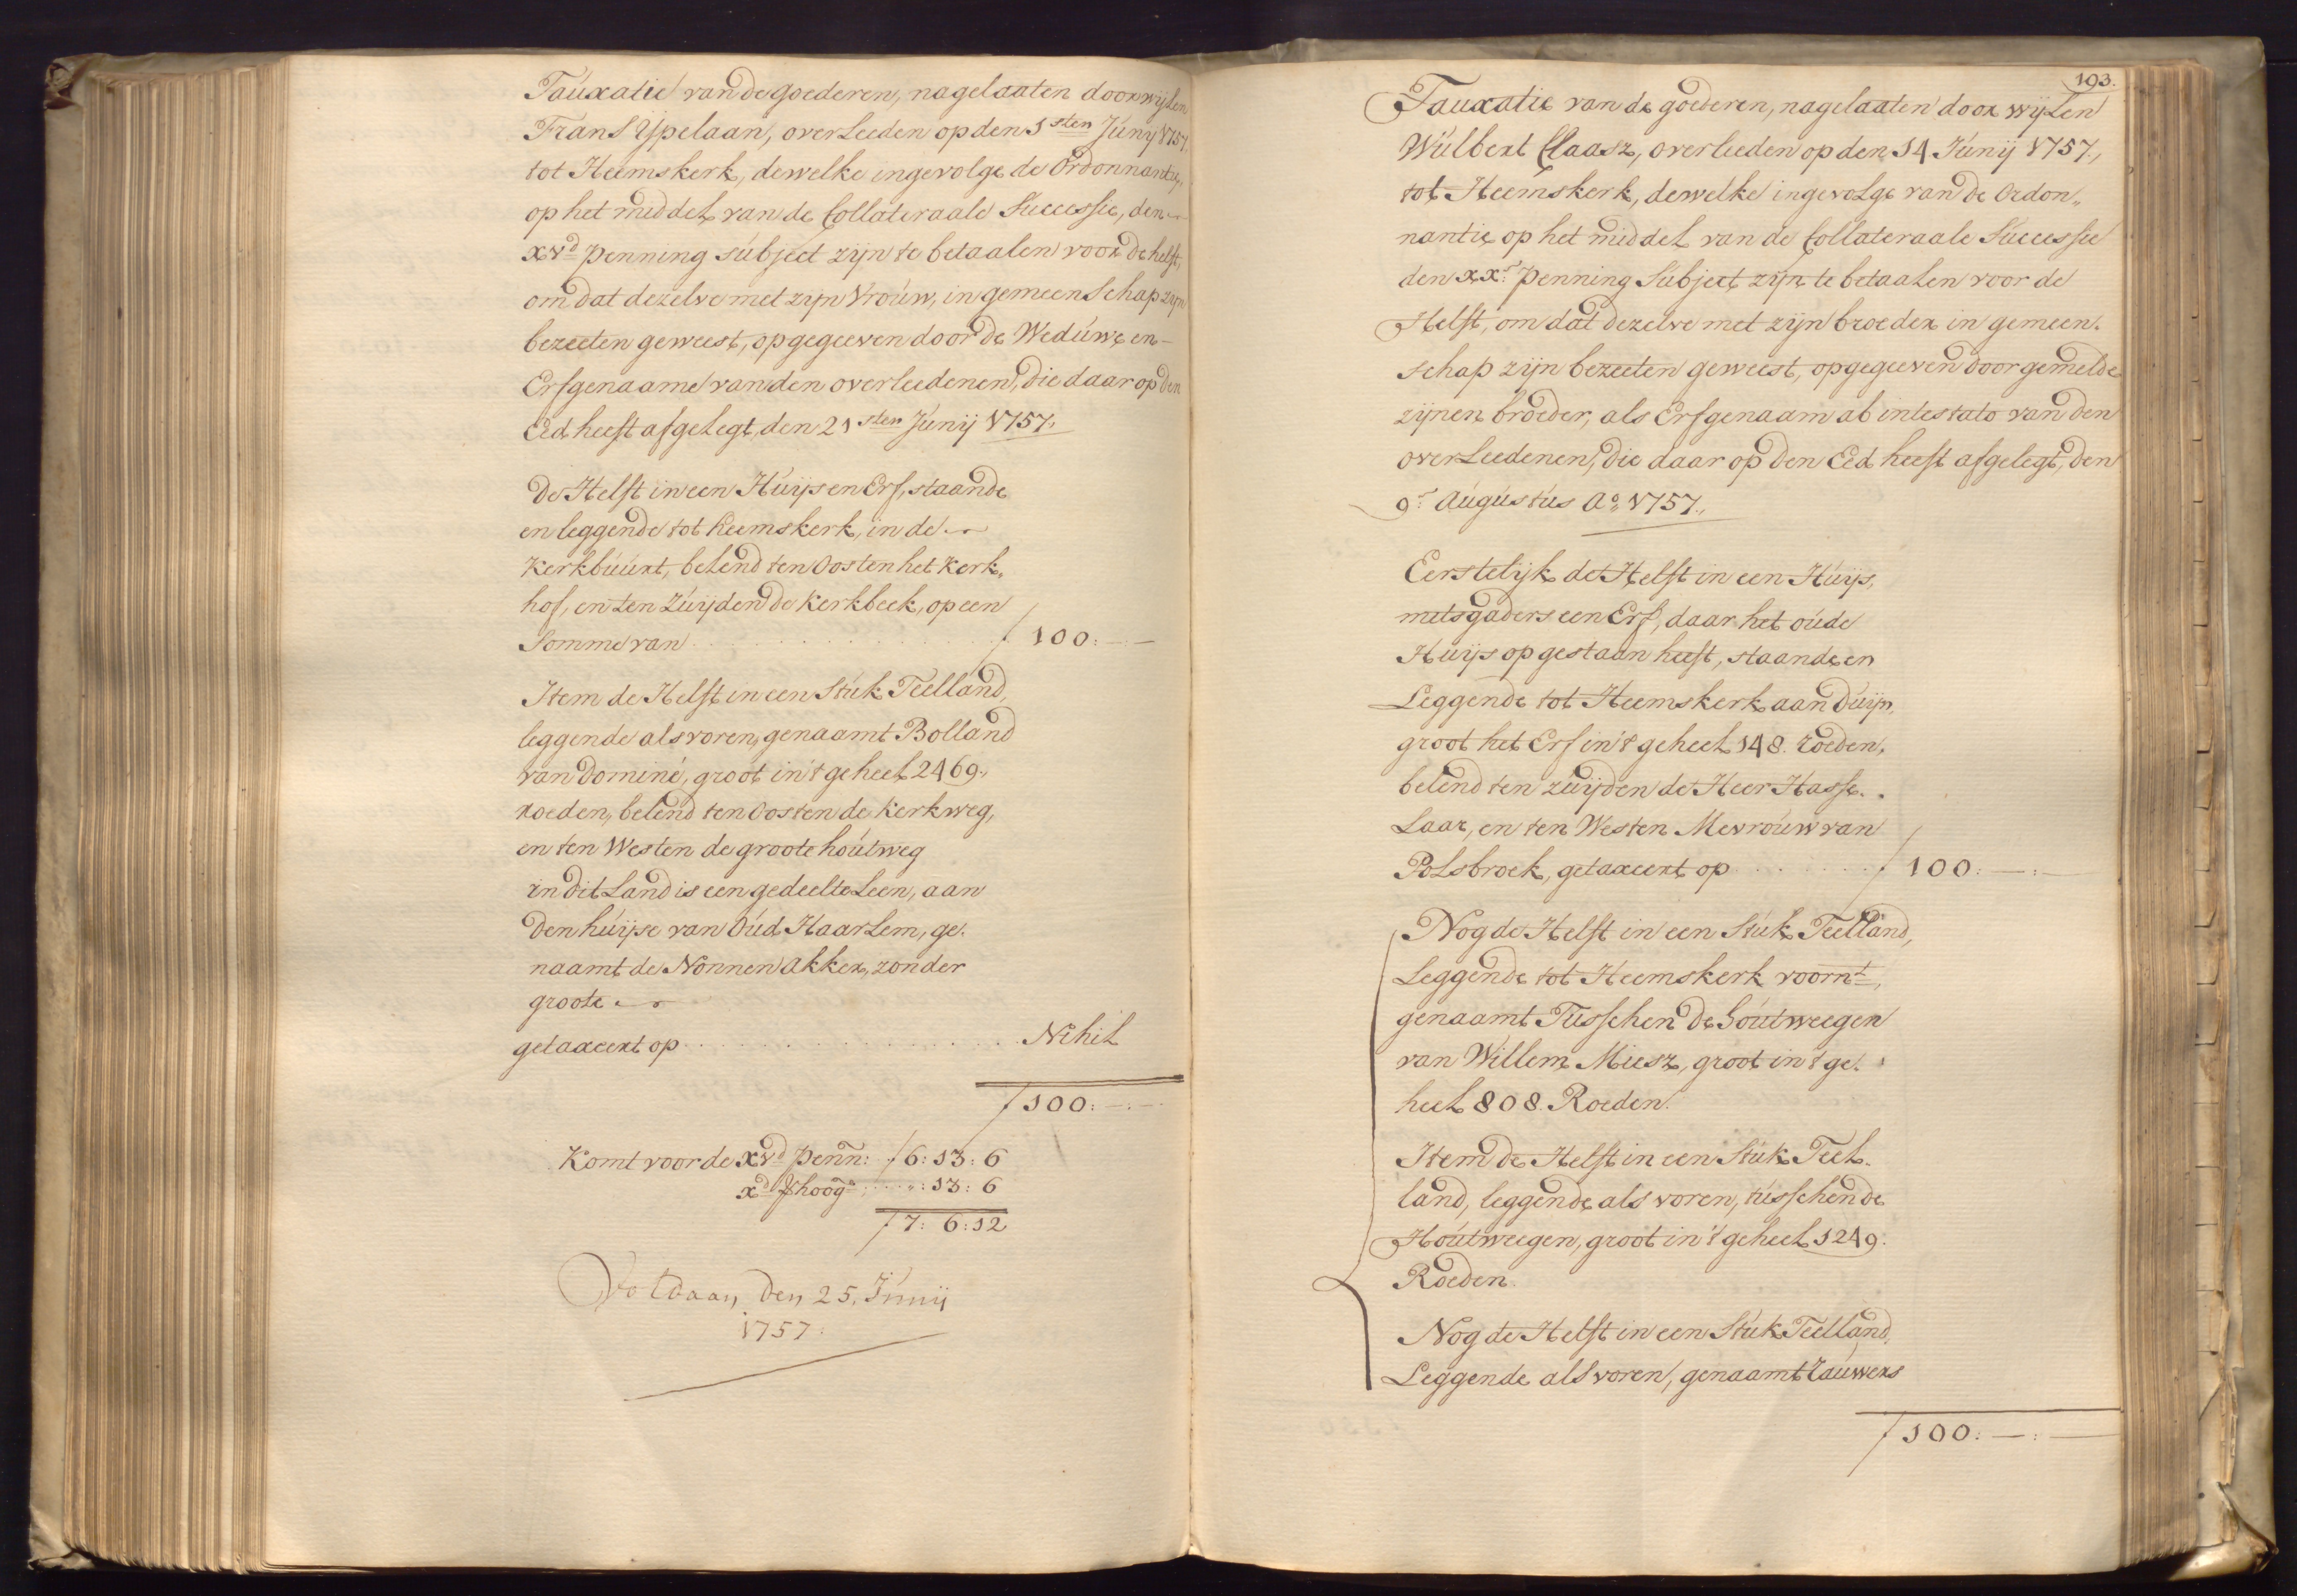 Tauxatie van de goederen, nagelaaten door wijlen
Frans Ypelaan, overleeden op den 1sten Junij 1757,
tot Heemskerk, dewelke ingevolge de Ordonnantie,
op het middel van de Collateraale Successie, den
xvd penning subject zijn te betaalen voor de helft,
om dat dezelve met zijn Vrouw, in gemeenschap zijn
bezeeten geweest, opgegeeven door de Weduwe en
Erfgenaame van den overleedenen, die daar op den
Eed heeft afgelegt, den 21sten Junij 1757.
De Helft in een Huijs en Erf, staande
en leggende tot heemskerk, in de
Kerkbuurt, belend ten Oosten het Kerk„
hof, en ten Zuijden de Kerkbeek, op een
Somme van ƒ 100:—
Item de Helft in een Stuk Teelland,
leggende als voren, genaamt Bolland
van Dominé, groot in 't geheel 2469.
roeden, belend ten Oosten de Kerkweg,
en ten Westen de groote houtweg
in dit Land is een gedeelte Leen, aan
den huijse van Oud Haarlem, ge.
naamt de Nonnen akker, zonder
groote
getaxeert op Nihil
ƒ 100:—:—
Komt voor de xvd penn: ƒ 6:13:6
xd verhoog: „:13:6
ƒ 7:6:12
Voldaan den 25. Junij
1757.
193.
Tauxatie van de goederen, nagelaaten door wijlen
Wulbert Claasz, overleeden op den 14 Junij 1757.,
tot Heemskerk, dewelke ingevolge van de Ordon„
nantie op het middel van de Collateraale Successie
den xx: penning Subject zijn te betaalen voor de
Helft, om dat dezelve met zijn broeder in gemeen.
schap zijn bezeeten geweest, opgegeeven door gemelde
zijnen broeder, als Erfgenaam ab intestato van den
overleedenen, die daar op den Eed heeft afgelegt, den
9: Augustus Ao. 1757.
Eerstelijk de Helft in een Huijs,
mitsgaders een Erf, daar het oude
Huijs op gestaan heeft, staande en
Leggende tot Heemskerk aan Duijn,
groot het Erf in 't geheel 148. roeden,
belend ten zuijden de Heer Hasse.
Laar, en ten Westen Mevrouw van
Polsbroek, getaxeert op ƒ 100:—:—
Nog de Helft in een Stuk Teelland,
Leggende tot Heemskerk voornt,
genaamt Tusschen de houtweegen
van Willem Miesz, groot in 't ge.
heel 808. Roeden.
Item de Helft in een Stuk Teel.
land, leggende als voren, tusschen de
Houtweegen, groot in 't geheel 1249.
Roeden.
Nog de Helft in een Stuk Teelland,
Leggende als voren, genaamt Lauwers
ƒ 100:—:—